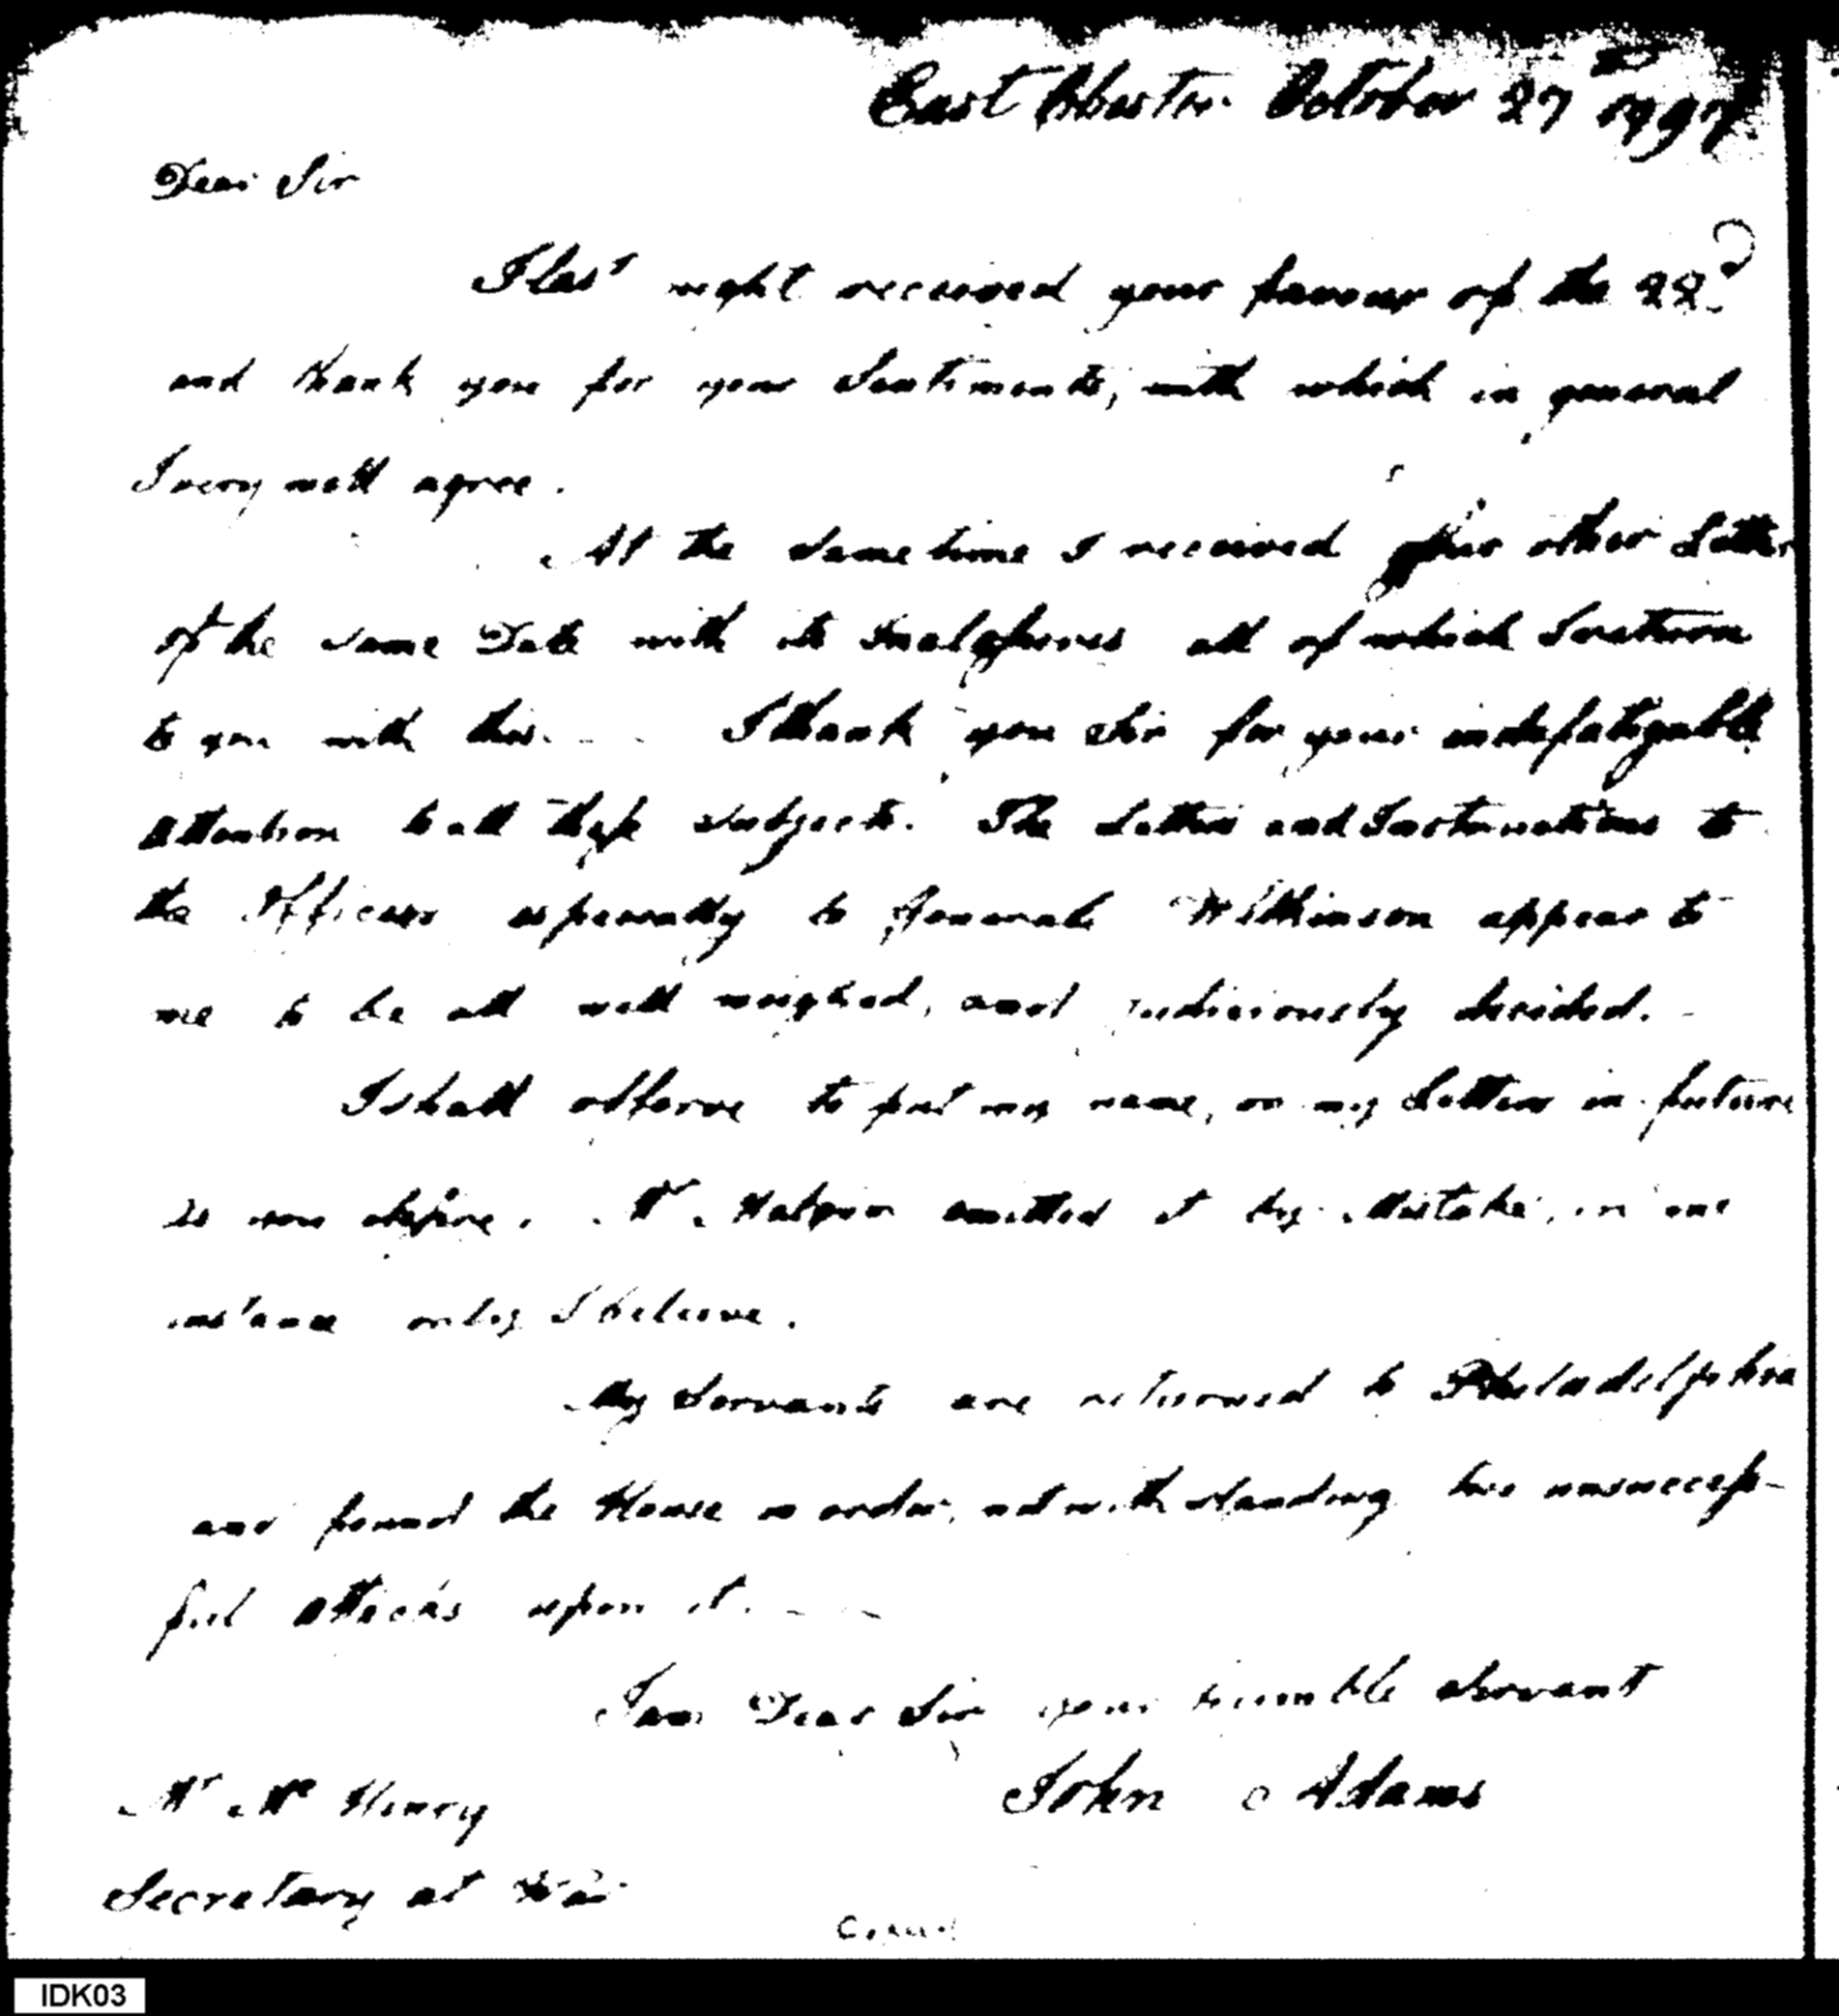 East Chester October 27 1797
Dear Sir
I last night received your favour of the 22d
and thank you for your Sentiments, with which in general
I very well agree.
At the same time I received your other Letter
of the same Date with its Inclosures all of which I return
to you with this. I thank you Sir for your indefatigable
Attention to all these subjects. The Letters and Instructions to
the Officers especially to General Wilkinson appear to
me to be all well weighed, and judiciously decided. -
I shall observe to put my name, on my Letters in future
as now before. Mr Malcom omitted it by Mistake, in one
instance only I believe.
My Servants are returned to Philadelphia
and found the House in order, notwithstanding two unsuccess-
ful Attacks upon it. - -
I am Dear Sir your humble Servant
Mr McHenry John Adams
Secretary at War
IDK03